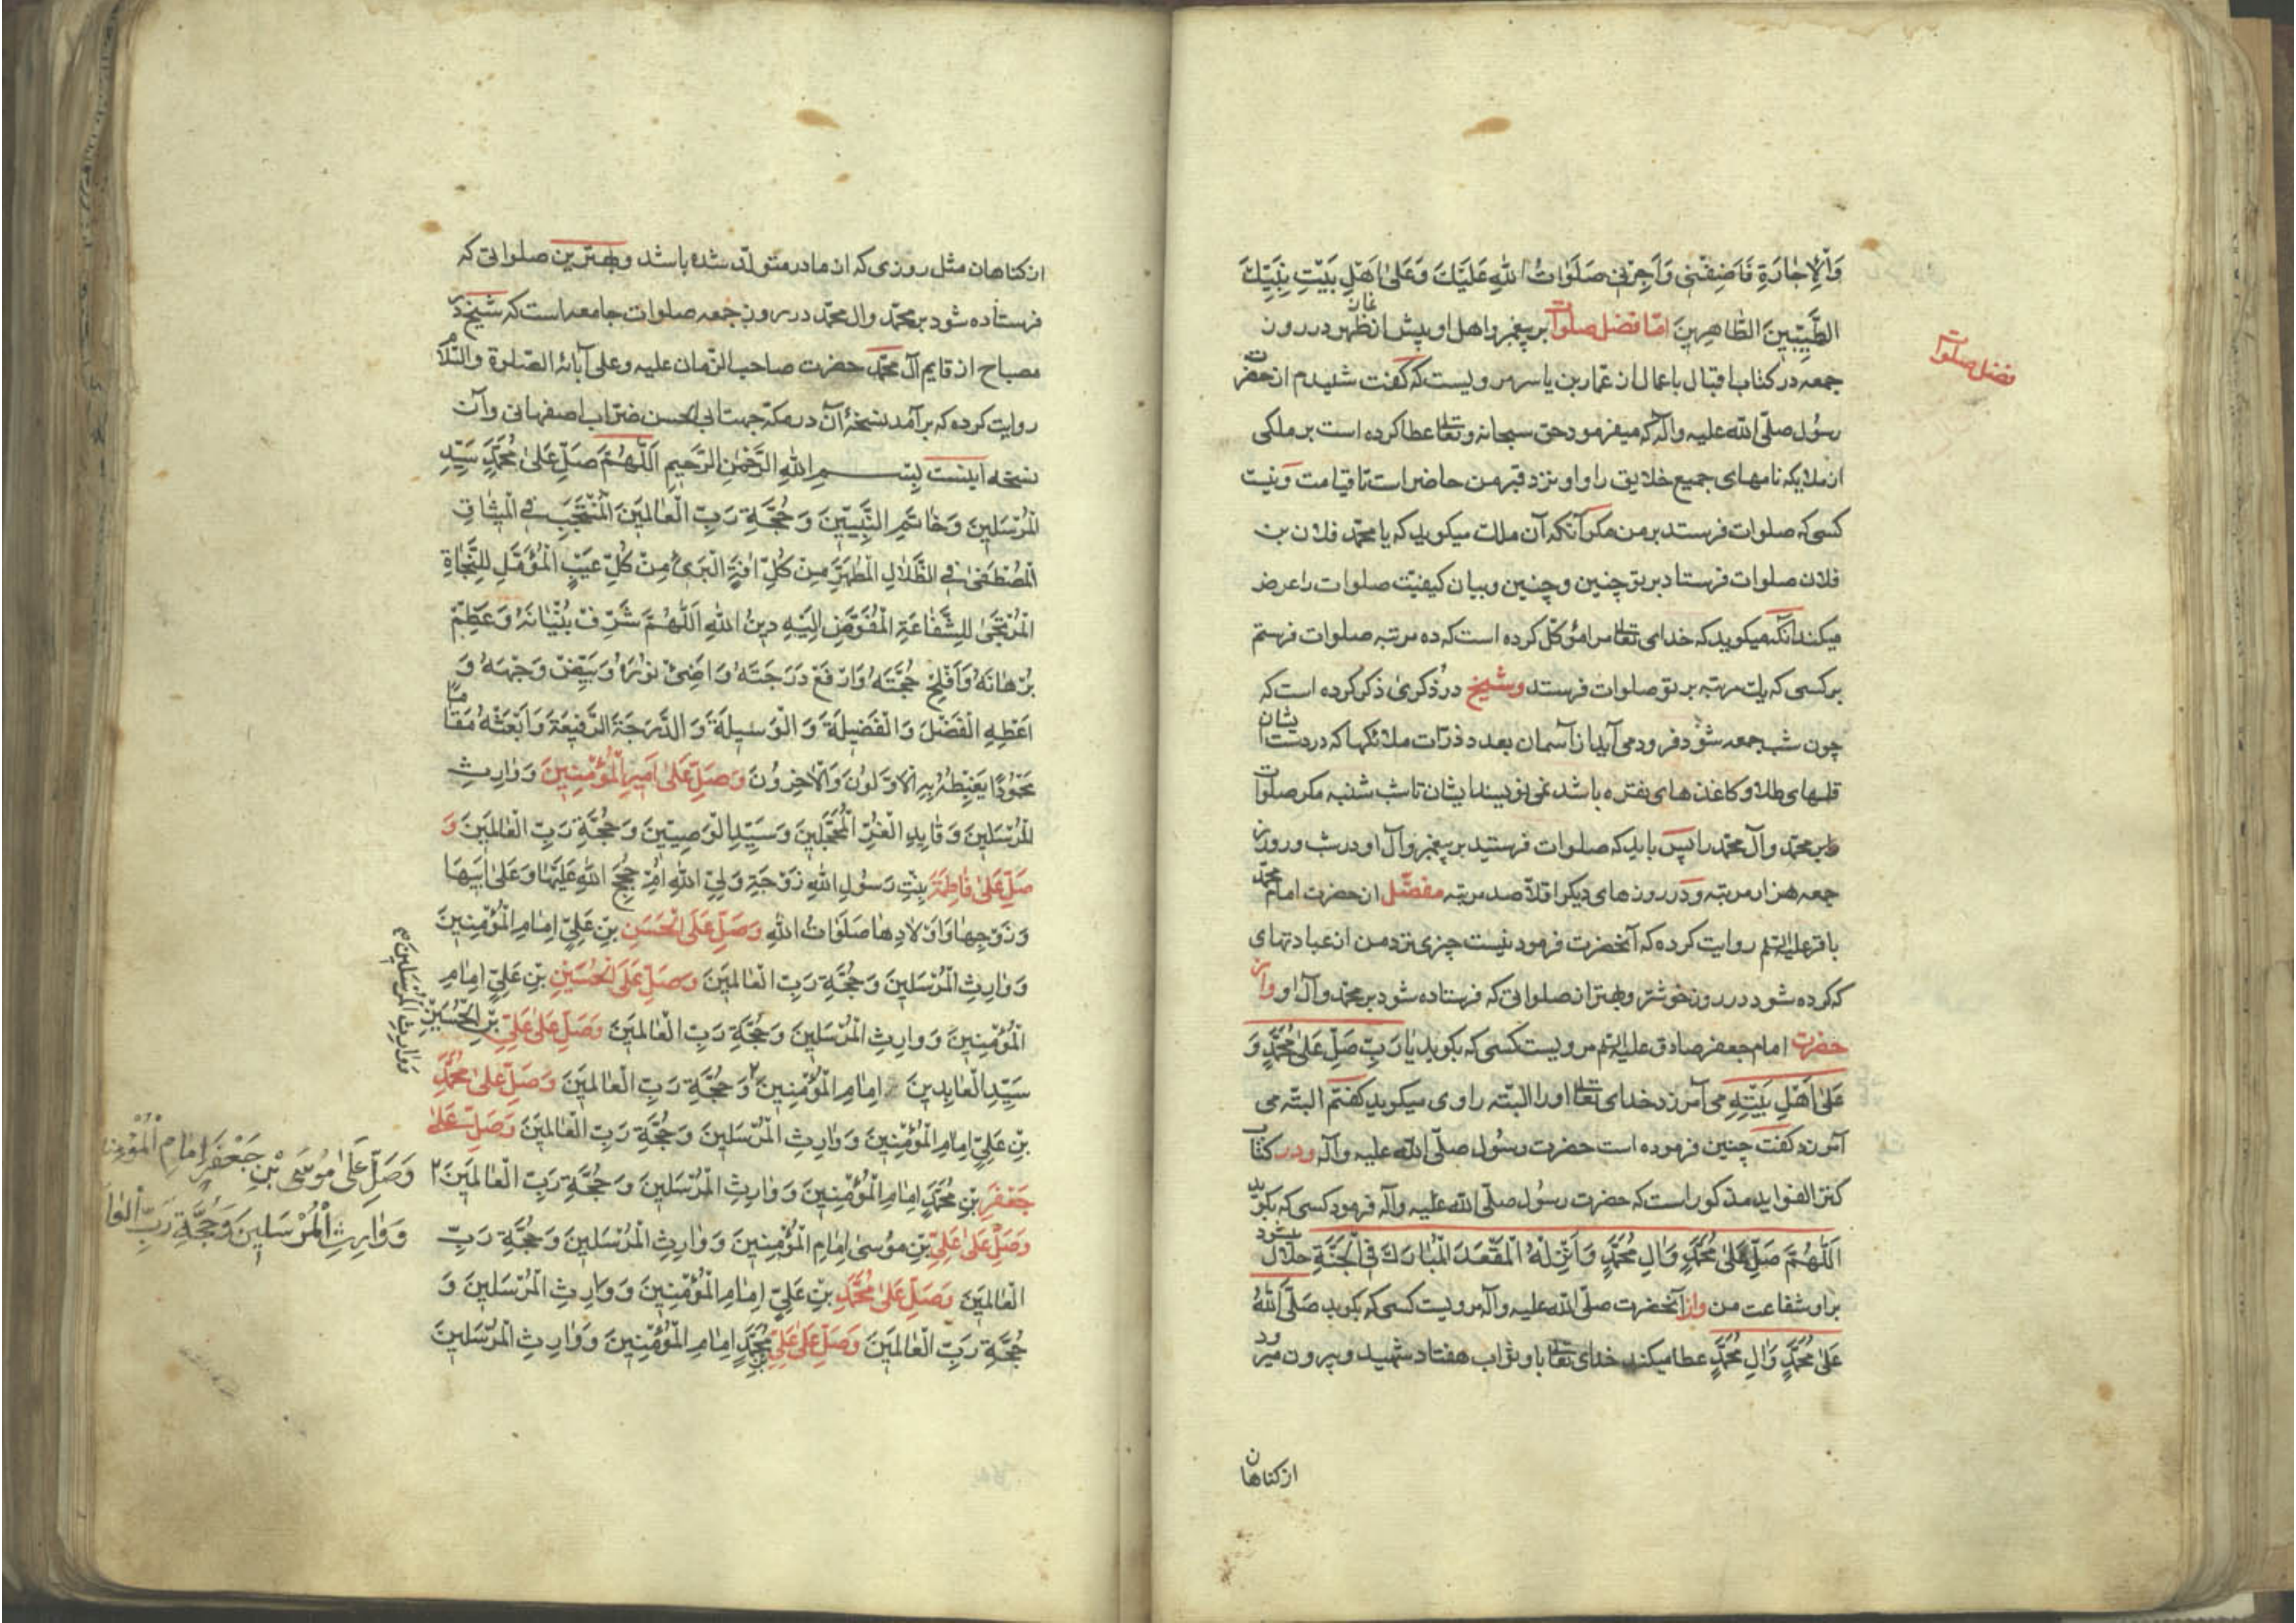 وَالْاِجٰارَةِ فَاَضِفْنِی وَاَجِرْنِی صَلَوٰاتُ اللهِ عَلَیْكَ وَعَلیٰ اَهْلِ بَیْتِ نَبِیِّكَ
الطَّیِّبِینَ الطّٰاهِرِینَ امّا فضل صلوات بر پیغمبر و اهل او پیش از نماز ظهر در روز
فضل صلوات
جمعه در کتاب اقبال باعمال از عمار بن یاسر مرویست که گفت شنیدم از حضرت
رسُول صلّی الله علیه وآله که میفرمود حق سبحانه وتعالی عطا کرده است بر ملکی
از ملایکه نامهای جمیع خلایق را و او نزد قبر من حاضر است تا قیامت و نیست
کسی که صلوات فرستد بر من مکر آنکه آن ملك میکوید که یا محمّد فلان بن
فلان صلوات فرستاد بر تو چنین و چنین و بیان کیفیّت صلوات را عرض
میکند آنکه میکوید که خدای تعالی مرا مؤکّل کرده است که ده مرتبه صلوات فرستم
بر کسی که یك مرتبه بر تو صلوات فرستد و شیخ در ذکری ذکر کرده است که
چون شب جمعه شود فرود می آیند از آسمان بعدد ذرّات ملائکها که در دست ایشان
قلمهای طلا و کاغذهای نقره باشد نمی نویسند ایشان تا شب شنبه مکر صلوات
بر محمّد وآل محمّد را پس باید که صلوات فرستید بر پیغمبر وآل او در شب و روز
جمعه هزار مرتبه و در روزهای دیکر اقلاّ صد مرتبه مفضّل از حضرت امام محمّد
باقر علیه السّلم روایت کرده که آنحضرت فرمود نیست چیزی نزد من از عبادتهای
که کرده شود در روز خوشتر و بهتر از صلواتی که فرستاده شود بر محمّد وآل او و از
حضرت امام جعفر صادق علیه السّلم مرویست کسی که بکوید یٰا رَبِّ صَلِّ عَلیٰ مُحَمَّدٍ وَ
عَلیٰ اَهْلِ بَیْتِهِ می آمرزد خدای تعالی او را البتّه راوی میکوید کفتم البتّه می
آمرزد کفت چنین فرموده است حضرت رسُول صلّی الله علیه وآله و در کتاب
کنز الفواید مذکور است که حضرت رسُول صلّی الله علیه وآله فرمود کسی که بکوید
اَللّٰهُمَّ صَلِّ عَلیٰ مُحَمَّدٍ وَاٰلِ مُحَمَّدٍ وَاَنْزِلْهُ الْمَقْعَدَ الْمُبٰارَكَ فِی الْجَنَّةِ حلال میشود
بر او شفاعت من و از آنحضرت صلّی الله علیه وآله مرویست کسی که بکوید صَلَّی اللهُ
عَلیٰ مُحَمَّدٍ وَاٰلِ مُحَمَّدٍ عطا میکند خدای تعالی باو ثواب هفتاد شهید و بیرون میرود
از کناهان
از کناهان مثل روزی که از مادر متولّد شده باشد و بهترین صلواتی که
فرستاده شود بر محمّد وال محمّد در روز جمعه صلوات جامعه است که شیخ در
مصباح از قایم آل محمّد حضرت صاحب الزّمان علیه وعلی آبائه الصّلوة والسّلام
روایت کرده که برآمد نسخهٔ آن در مکّه جهت ابی الحسن ضرّاب اصفهانی و آن
نسخه اینست بِسْمِ اللهِ الرَّحْمٰنِ الرَّحِیمِ اَللّٰهُمَّ صَلِّ عَلیٰ مُحَمَّدٍ سَیِّدِ
الْمُرْسَلِینَ وَخٰاتَمِ النَّبِیِّینَ وَحُجَّةِ رَبِّ الْعٰالَمِینَ الْمُنْتَجَبِ فِی الْمِیثٰاقِ
الْمُصْطَفیٰ فِی الظِّلٰالِ الْمُطَهَّرِ مِنْ كُلِّ اٰفَةٍ الْبَریٔ مِنْ كُلِّ عَیْبٍ الْمُؤَمَّلِ لِلنَّجٰاةِ
الْمُرْتَجیٰ لِلشَّفٰاعَةِ الْمُفَوَّضِ اِلَیْهِ دِینُ اللهِ اَللّٰهُمَّ شَرِّفْ بُنْیٰانَهُ وَعَظِّمْ
بُرْهٰانَهُ وَاَفْلِحْ حُجَّتَهُ وَارْفَعْ دَرَجَتَهُ وَاَضِیْٔ نُورَهُ وَبَیِّضْ وَجْهَهُ وَ
اَعْطِهِ الْفَضْلَ وَالْفَضِیلَةَ وَالْوَسِیلَةَ وَالدَّرَجَةَ الرَّفِیعَةَ وَابْعَثْهُ مَقٰامًا
مَحْمُودًا یَغْبِطُهُ بِهِ الْاَوَّلُونَ وَالْاٰخِرُونَ وَصَلِّ عَلیٰ اَمِیرِالْمُؤْمِنِینَ وَوٰارِثِ
الْمُرْسَلِینَ وَقٰایِدِ الْغُرِّ الْمُحَجَّلِینَ وَسَیِّدِ الْوَصِیِّینَ وَحُجَّةِ رَبِّ الْعٰالَمِینَ وَ
صَلِّ عَلیٰ فٰاطِمَةَ بِنْتِ رَسُولِ اللهِ زَوْجَةِ وَلِیِّ اللهِ اُمِّ حُجَجِ اللهِ عَلَیْهٰا وَعَلیٰ اَبِیهَا
وَزَوْجِهٰا وَاَوْلاٰدِهٰا صَلَوٰاتُ اللهِ وَصَلِّ عَلَی الْحَسَنِ بْنِ عَلِیٍّ اِمٰامِ الْمُؤْمِنِینَ
وَوٰارِثِ الْمُرْسَلِینَ وَحُجَّةِ رَبِّ الْعٰالَمِینَ وَصَلِّ عَلَی الْحُسَیْنِ بْنِ عَلِیٍّ اِمٰامِ
الْمُؤْمِنِینَ وَوٰارِثِ الْمُرْسَلِینَ وَحُجَّةِ رَبِّ الْعٰالَمِینَ وَصَلِّ عَلیٰ عَلِیِّ بْنِ الْحُسَیْنِ
سَیِّدِ الْعٰابِدِینَ اِمٰامِ الْمُؤْمِنِینَ ٢ وَحُجَّةِ رَبِّ الْعٰالَمِینَ وَصَلِّ عَلیٰ مُحَمَّدِ
وَوٰارِثِ الْمُرْسَلِینَ
بْنِ عَلِیٍّ اِمٰامِ الْمُؤْمِنِینَ وَوٰارِثِ الْمُرْسَلِینَ وَحُجَّةِ رَبِّ الْعٰالَمِینَ وَصَلِّ عَلیٰ
جَعْفَرِ بْنِ مُحَمَّدٍ اِمٰامِ الْمُؤْمِنِینَ وَوٰارِثِ الْمُرْسَلِینَ وَحُجَّةِ رَبِّ الْعٰالَمِینَ ٢
وَصَلِّ عَلیٰ مُوسَی بْنِ جَعْفَرٍ اِمٰامِ الْمُؤْمِنِ
وَوٰارِثِ الْمُرْسَلِینَ وَحُجَّةِ رَبِّ الْعٰالَ
وَصَلِّ عَلیٰ عَلِیِّ بْنِ مُوسیٰ اِمٰامِ الْمُؤْمِنِینَ وَوٰارِثِ الْمُرْسَلِینَ وَحُجَّةِ رَبِّ
الْعٰالَمِینَ وَصَلِّ عَلیٰ مُحَمَّدِ بْنِ عَلِیٍّ اِمٰامِ الْمُؤْمِنِینَ وَوٰارِثِ الْمُرْسَلِینَ وَ
حُجَّةِ رَبِّ الْعٰالَمِینَ وَصَلِّ عَلیٰ عَلِیِّ بْنِ مُحَمَّدٍ اِمٰامِ الْمُؤْمِنِینَ وَوٰارِثِ الْمُرْسَلِینَ